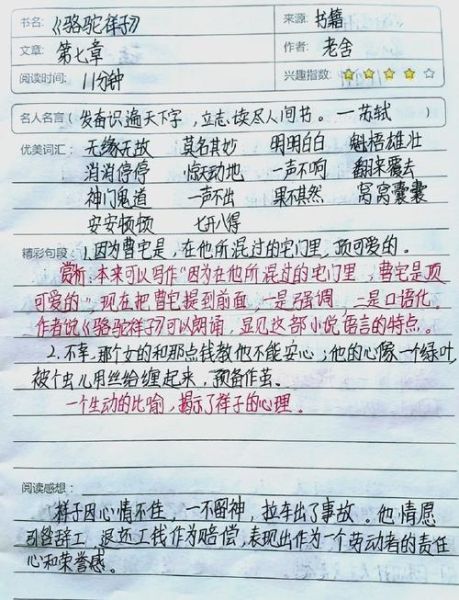 书名：《骆驼祥子》 来源：书籍
文章：第七章 作者：老舍
阅读时间：11分钟 兴趣指数：
名人名言（发奋识遍天下字，立志读尽人间书。—苏轼）
优美词汇：无缘无故 莫名其妙 明明白白 魁梧雄壮
消消停停 惊天动地 一声不响 翻来覆去
神门鬼道 一声不出 果不其然 窝窝囊囊
安安顿顿 七升八得
精彩句段：1.因为曹宅是，在他所混过的宅门里，顶可爱的。
赏析：本来可以写作“因为在他所混过的宅门里，曹宅是顶
可爱的”，现在把曹宅提到前面，一是强调，二是口语化。
作者说《骆驼祥子》可以朗诵，显见这部小说语言的特点。
2.不幸，那个女的和那点钱教他不能安心；他的心像一个绿叶，
被个虫儿用丝给缠起来，预备作茧。
一个生动的比喻，揭示了祥子的心理。
阅读感想：
祥子因心情不佳，一不留神，拉车出了事故。他情愿
引咎辞工，退还工钱作为赔偿，表现出作为一个劳动者的责任
心和荣誉感。